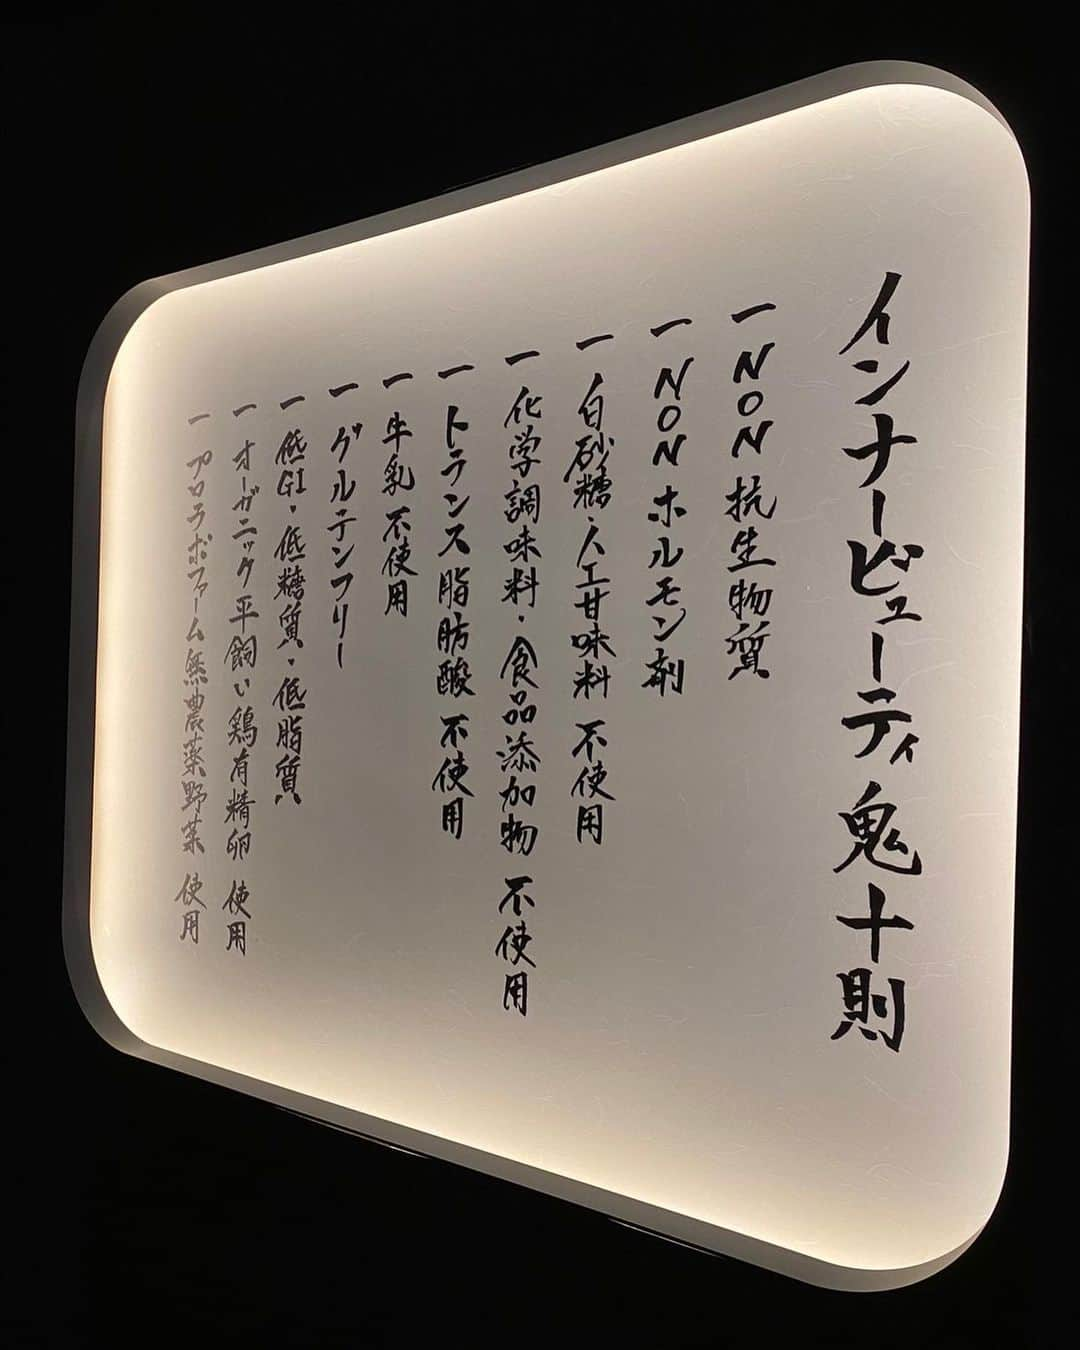 インナービューティ鬼十則
一 NON 抗生物質
一 NON ホルモン剤
一 白砂糖・人工甘味料 不使用
一 化学調味料・食品添加物 不使用
一 トランス脂肪酸 不使用
一 牛乳 不使用
一 グルテンフリー
一 低GI・低糖質・低脂質
一 オーガニック平飼い鶏有精卵 使用
一 プロラボファーム無農薬野菜 使用